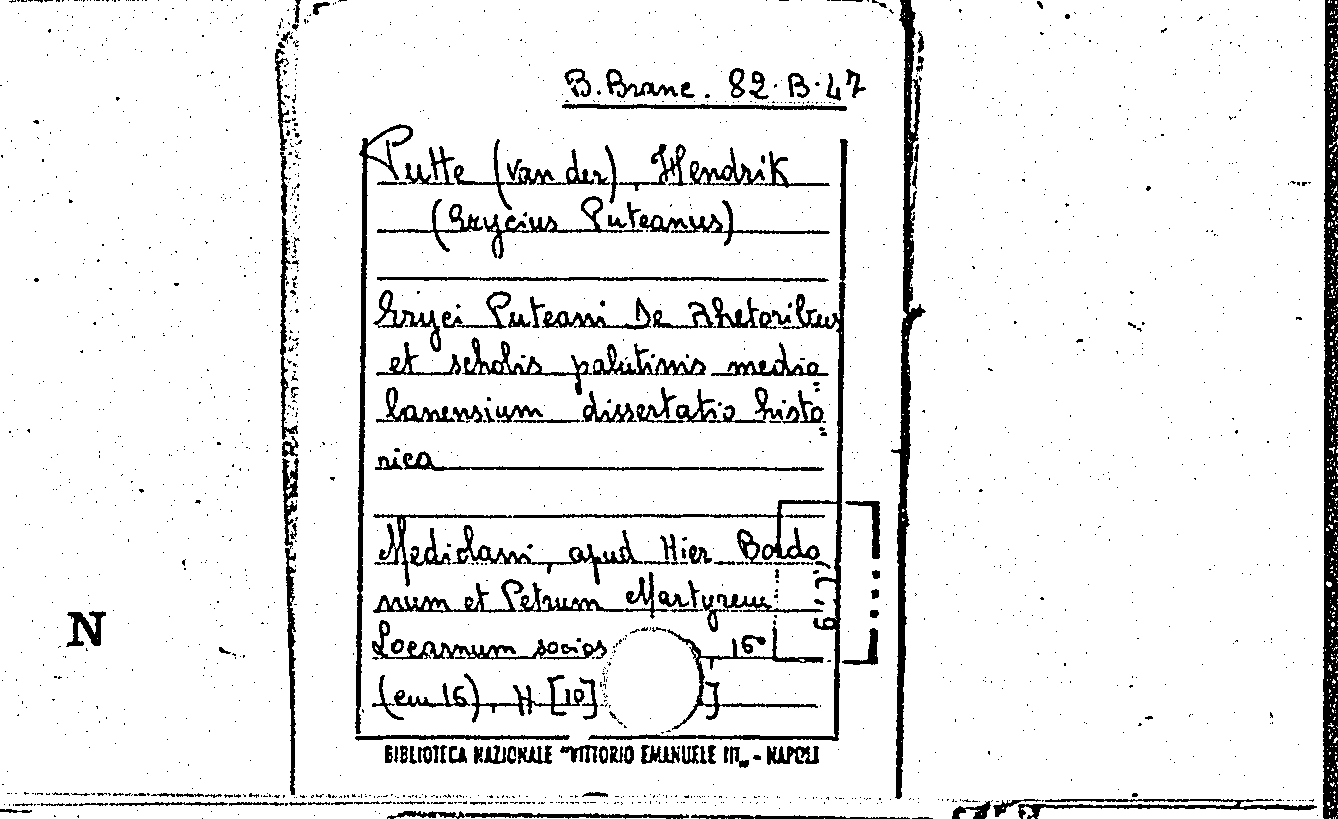 B. Branc. 82.B.47
Putte (van der), Hendrik
(Erycius Puteanus)
Eryci Puteani De Rhetoribus
et scholis palatinis medio
lanensium dissertatio histo
rica
Mediolani, apud Hier. Bordo
num et Petrum Martyrem
Locarnum socios , 16°
(cm 16), H [10] ]
BIBLIOTECA NAZIONALE "VITTORIO EMANUELE III„ - NAPOLI
N